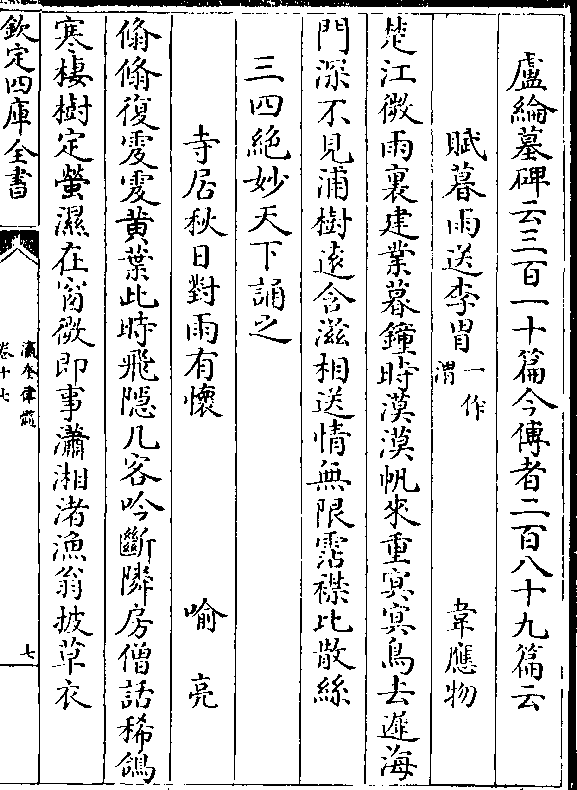 盧綸墓碑云三百一十篇今傳者二百八十九篇云
賦暮雨送李胄一作渭　韋應物
楚江微雨裏建業暮鐘時漠漠帆來重冥冥鳥去遲海
門深不見浦樹逺含滋相送情無限霑襟比散絲
三四絶妙天下誦之
寺居秋日對雨有懷　喻亮
翛翛復霎霎黄葉此時飛隠几客吟斷隣房僧話稀鴿
寒棲樹定螢濕在窗微即事瀟湘渚漁翁披草衣
欽定四庫全書
瀛奎律髓
卷十七
七